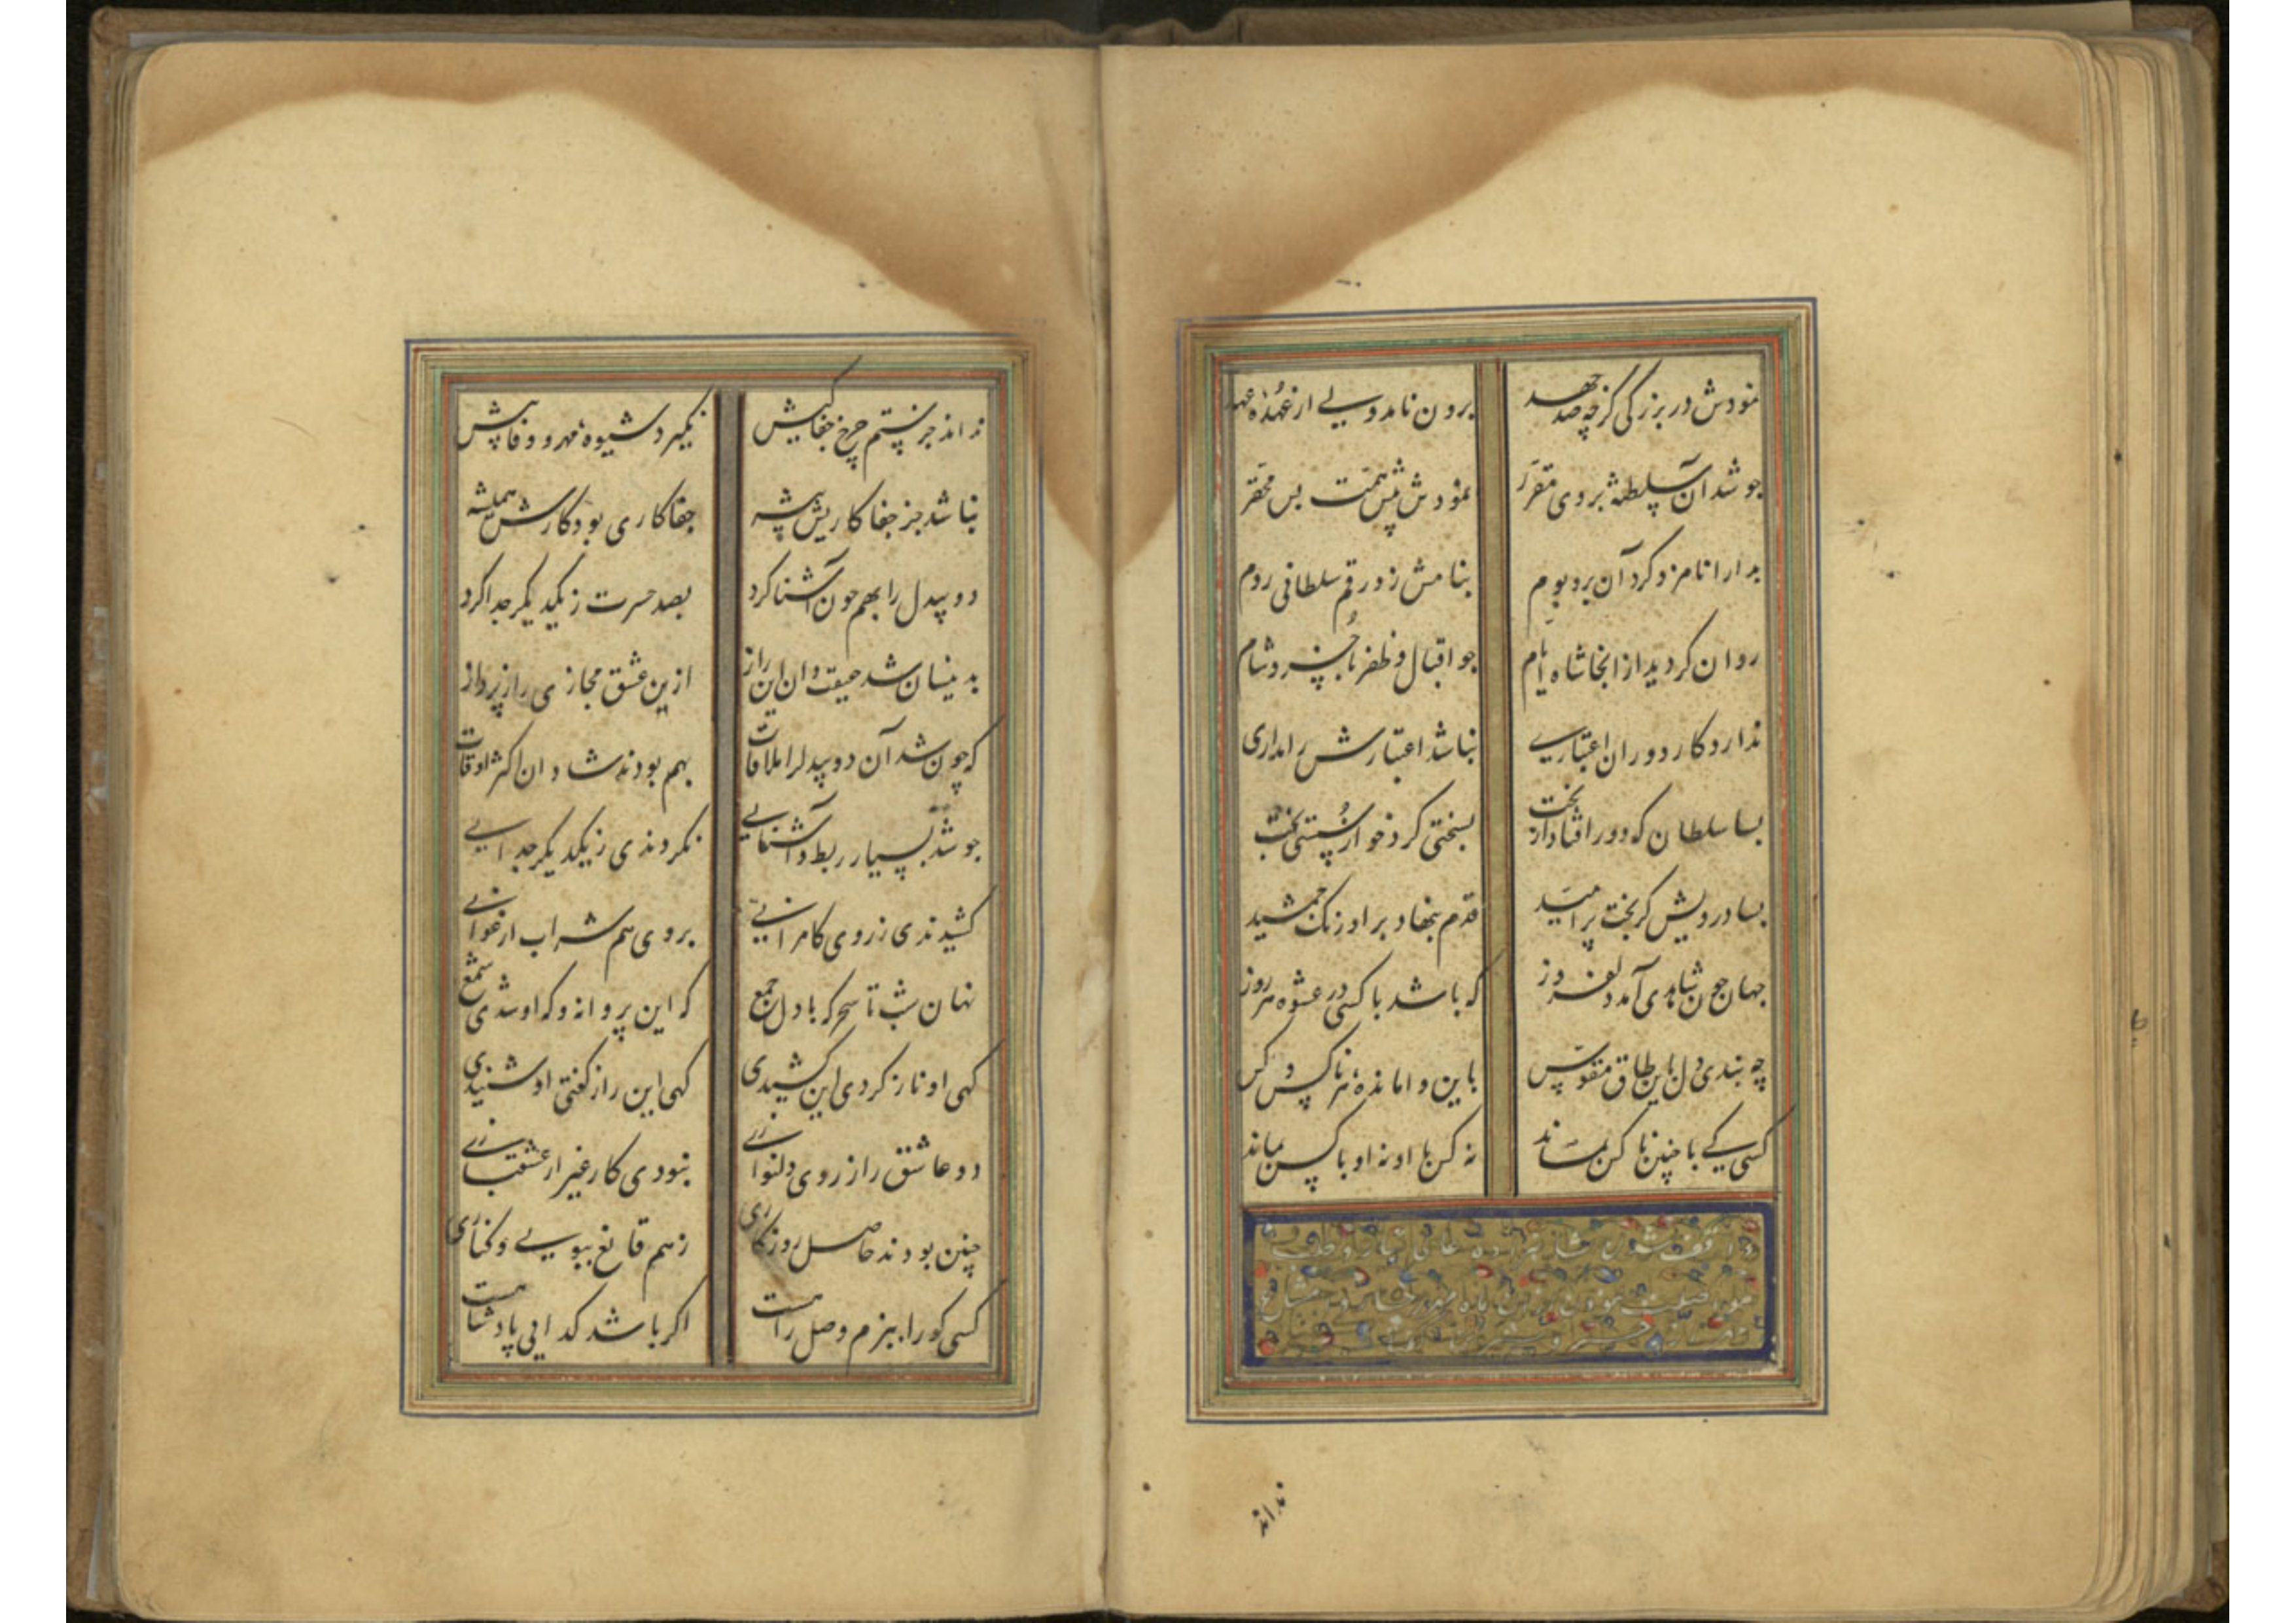 نمودش در بزرگی گرچه صد جهد برون نامد ولی از عهدهٔ عهد
چو شد آن سلطنه بر وی مقرر نمودش پیش همت بس محقر
بدارا نامزد کرد آن بر و بوم بنامش زد رقم سلطانی روم
روان گردید از آنجا شاه ایام چو اقبال و ظفر تا خسرو شام
ندارد کار دوران اعتباری نباشد اعتبارش را مداری
بسا سلطان که دور افتاد از تخت بسختی کرد خو از سستی بخت
بسا درویش کز بخت پر امید قدم بنهاد بر اورنگ جمشید
جهان چون شاهدی آمد دلفروز که باشد با کسی در عشوه هر روز
چه بندی دل باین طاق مقوس باین وامانده هر ناکس و کس
کسی کی با چنین ناکس بماند نه کس با او نه او با کس بماند
نداند
نداند جز ستم چرخ جفا کیش نگیرد شیوه مهر و وفا پیش
نباشد جز جفا کاریش پیشه جفا کاری بود کارش همیشه
دو بیدل را بهم چون آشنا کرد بصد حسرت ز یکدیگر جدا کرد
بدینسان شد حقیقت دان این راز ازین عشق مجازی راز پرداز
که چون شد آن دو بیدل را ملاقات بهم بودند شادان اکثر اوقات
چو شد بسیار ربط و آشنایی نکردندی ز یکدیگر جدایی
کشیدندی ز روی کامرانی بروی هم شراب ارغوانی
نهان شب تا سحر که با دل جمع که این پروانه و که او شدی شمع
کهی او ناز کردی این کشیدی کهی این راز گفتی او شنیدی
دو عاشق را ز روی دلنوازی نبودی کار غیر از عشقبازی
چنین بودند حاصل روزگاری ز هم قانع ببویی و کناری
کسی کو را ببزم وصل راهست اگر باشد گدایی پادشاهست